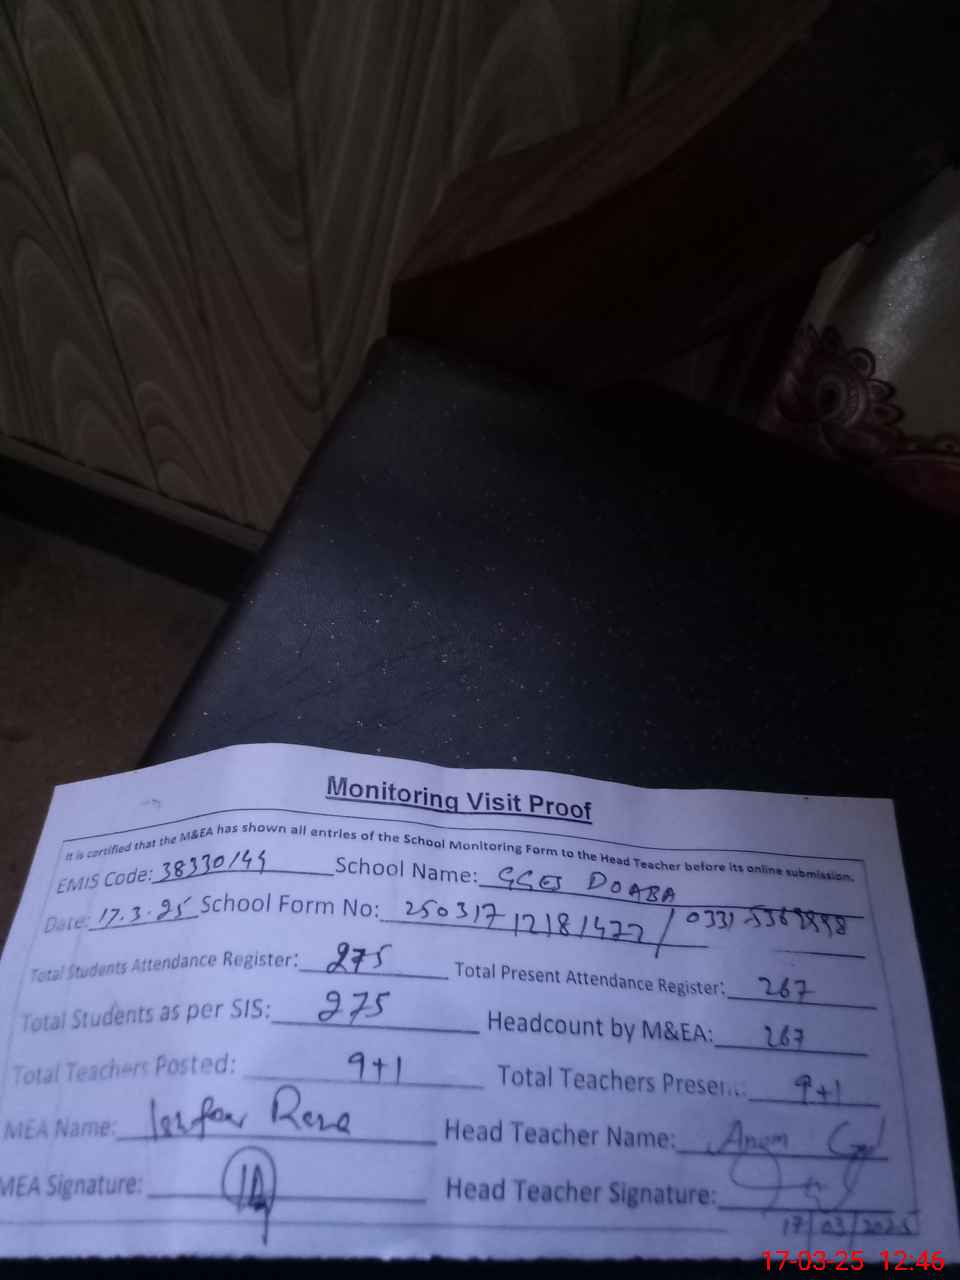 Monitoring Visit Proof
It is certified that the M&EA has shown all entries of the School Monitoring Form to the Head Teacher before its online submission.
EMIS Code: 38330144 School Name: GGES DOABA
Date: 17.3.25 School Form No: 25031712181477 /
Total Students Attendance Register: 275 Total Present Attendance Register: 267
Total Students as per SIS: 275 Headcount by M&EA: 267
Total Teachers Posted: 9+1 Total Teachers Present: 9+1
MEA Name: Head Teacher Name: Anam
MEA Signature: Head Teacher Signature:
17/03/2025
17-03-25 12:46